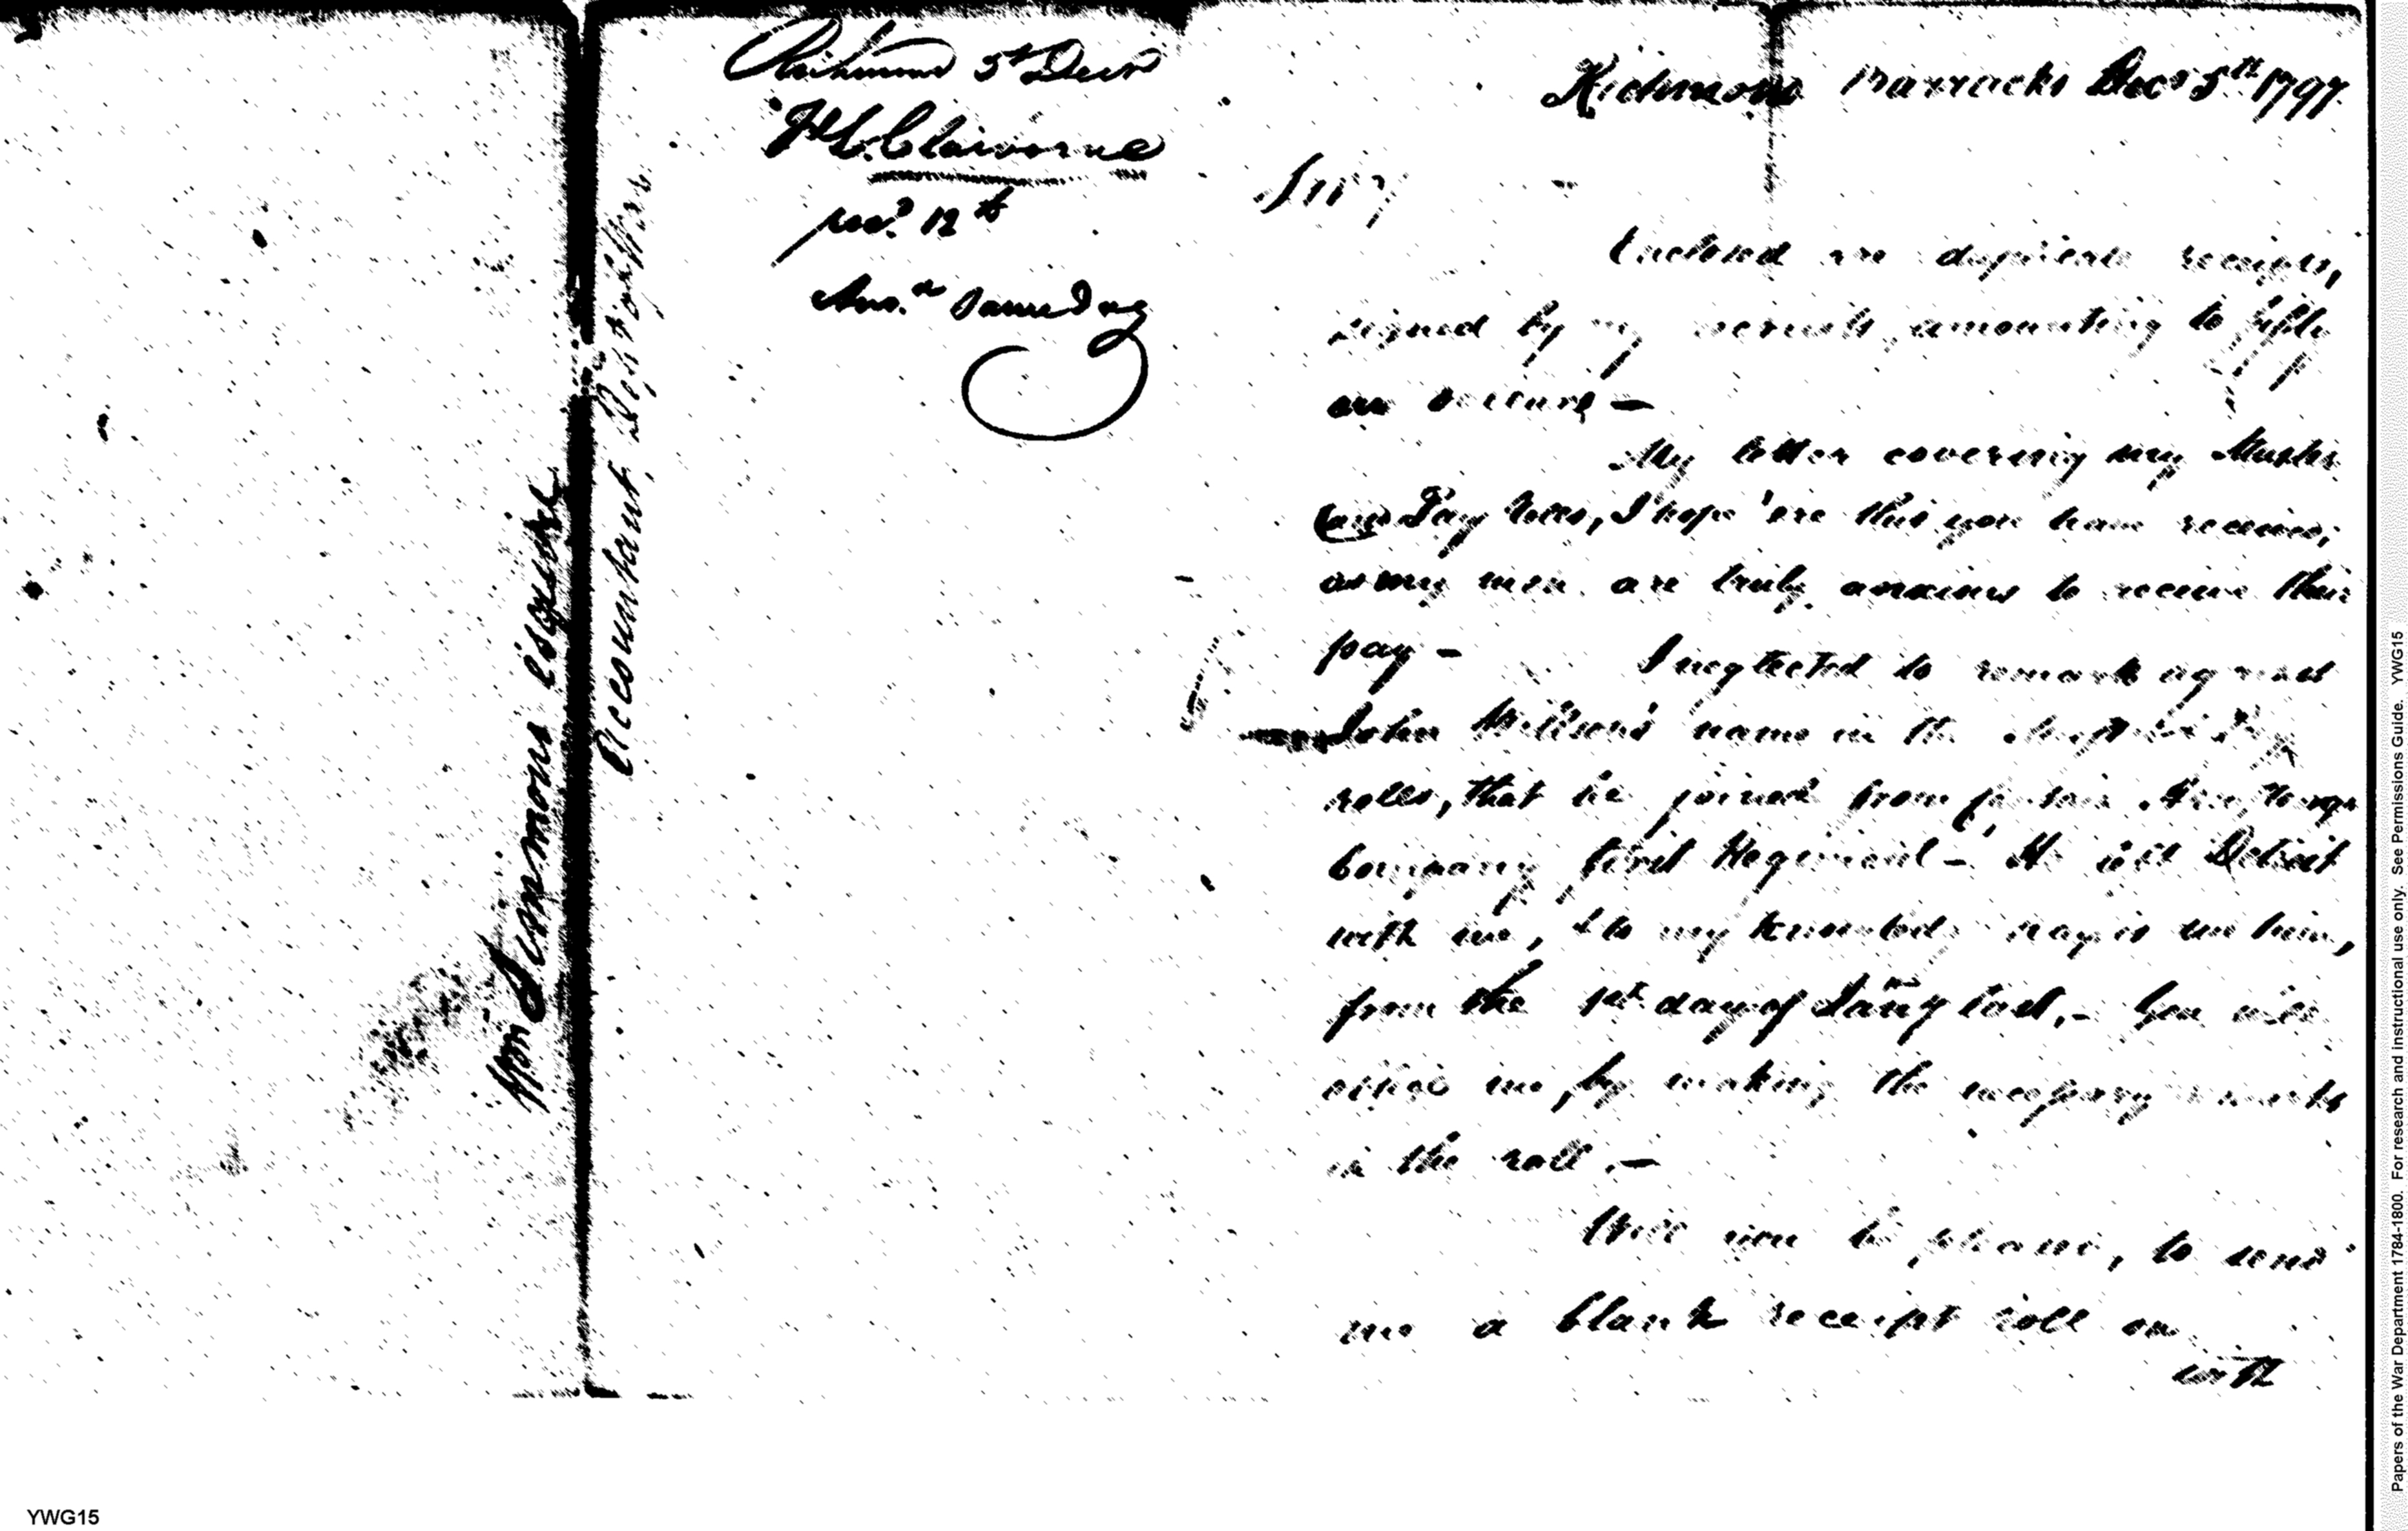 Richmond 5th Decr
Claiborne
recd. 12th
Ansd. same day
Wm Simmons Esquire
Accountant, Dept of War
Richmond Barracks Decr 5th 1797.
Sir,
Enclosed are duplicate receipts,
signed by my recruits, amounting to fifty
dollars —
My letter covering my Muster
and Pay Roles, I hope 'ere this you have received,
as my men are truly anxious to receive their
pay — I neglected to remark against
John Willson's name in the Muster & Pay
roles, that he joined from Captain
Company first Regiment — He left Detroit
with me, & to my knowledge pay is due him,
from the 1st day of Jany last, — You will
oblige me, by making the necessary remarks
in the roll. —
Will you be pleased, to send
me a blank receipt roll on
with
YWG15
Papers of the War Department 1784-1800. For research and instructional use only. See Permissions Guide. YWG15